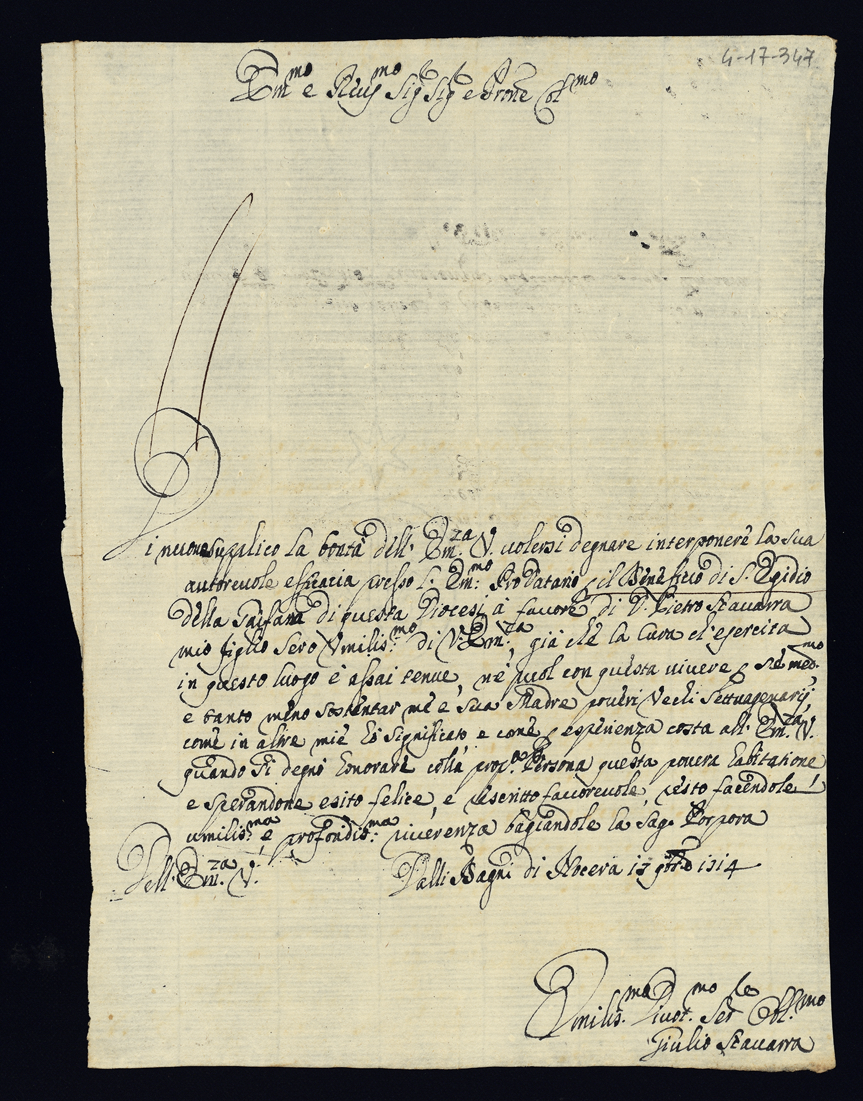 4-17-347
Em.mo e Reu.mo Sig.r Sig.r e Prone Col.mo
Di nuovo supplico la bontà dell. Em.za V. uolersi degnare interponere la sua
autoreuole efficacia presso l. Em.mo Prodatario, p il Benefitio di S. Egidio
della di questa Diocesi à fauore di D. Pietro Stauarra
mio figlio Seruo Vmilis.mo di V. Em.za, già chè la Cura ch'esercita
in questo luogo è assai tenue, nè puol con questa uiuere p sè med.mo
e tanto meno sostentar mè e Sua Madre poueri Vechi Settuagenarij;
comè in altre miè hò significato e comè p esperienza costa all. Em.za V.
quando Si degnò honorarè collà prop.a Persona questa pouera habitatione
e Sperandone esito felice, e rescritto fauoreuole, resto facendole
umilis.ma e profondis.ma riuerenza bagiandole la Sag. Porpora
Dell. Em.za V. Dalli Bagni di Nocera 1714
Vmilis.mo Diuot.mo Ser.re Obl.mo
Giulio Stauarra